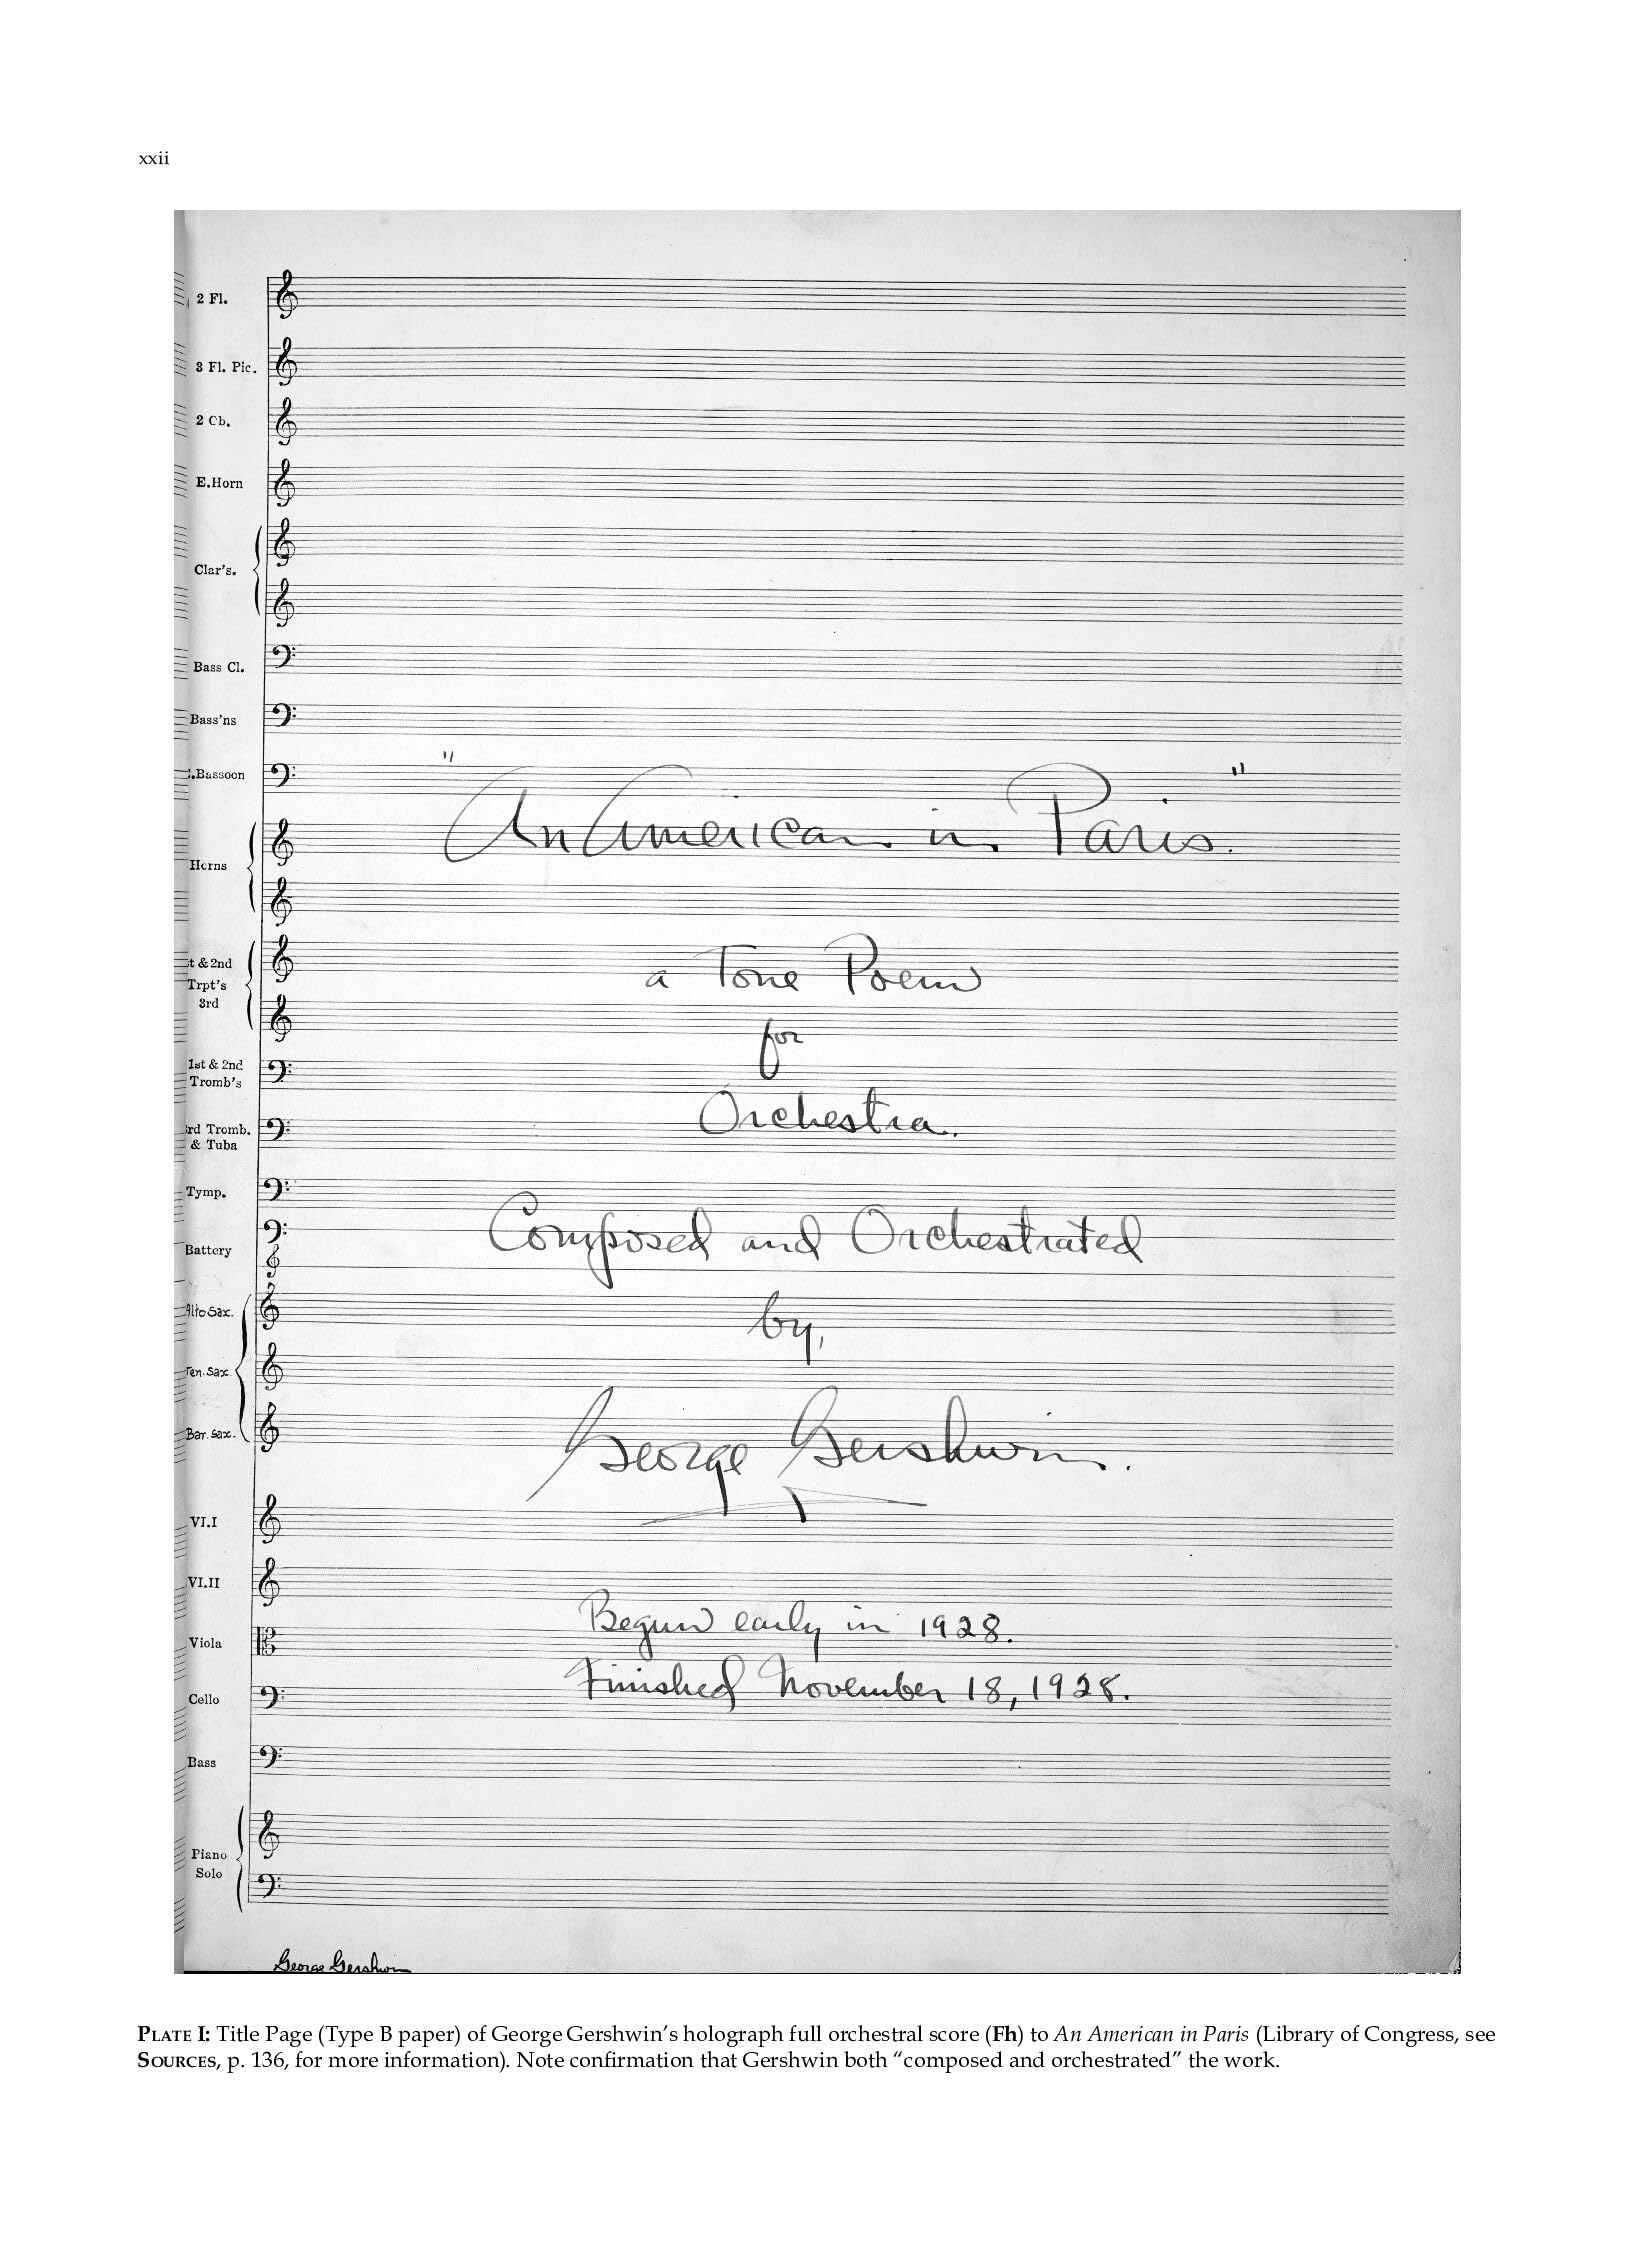 xxii
2 Fl.
3 Fl. Pic.
2 Ob.
E.Horn
Clar's.
Bass Cl.
Bass'ns
.Bassoon
"An American in Paris."
Horns
a Tone Poem
t & 2nd
Trpt's
3rd
for
1st & 2nd
Tromb's
Orchestra.
rd Tromb.
& Tuba
Tymp.
Composed and Orchestrated
Battery
Alto Sax.
by,
Ten. Sax.
Bar. Sax.
George Gershwin.
Vl.I
Vl.II
Begun early in 1928.
Viola
Finished November 18, 1928.
Cello
Bass
Piano
Solo
George Gershwin
PLATE I: Title Page (Type B paper) of George Gershwin’s holograph full orchestral score (Fh) to An American in Paris (Library of Congress, see
SOURCES, p. 136, for more information). Note confirmation that Gershwin both “composed and orchestrated” the work.